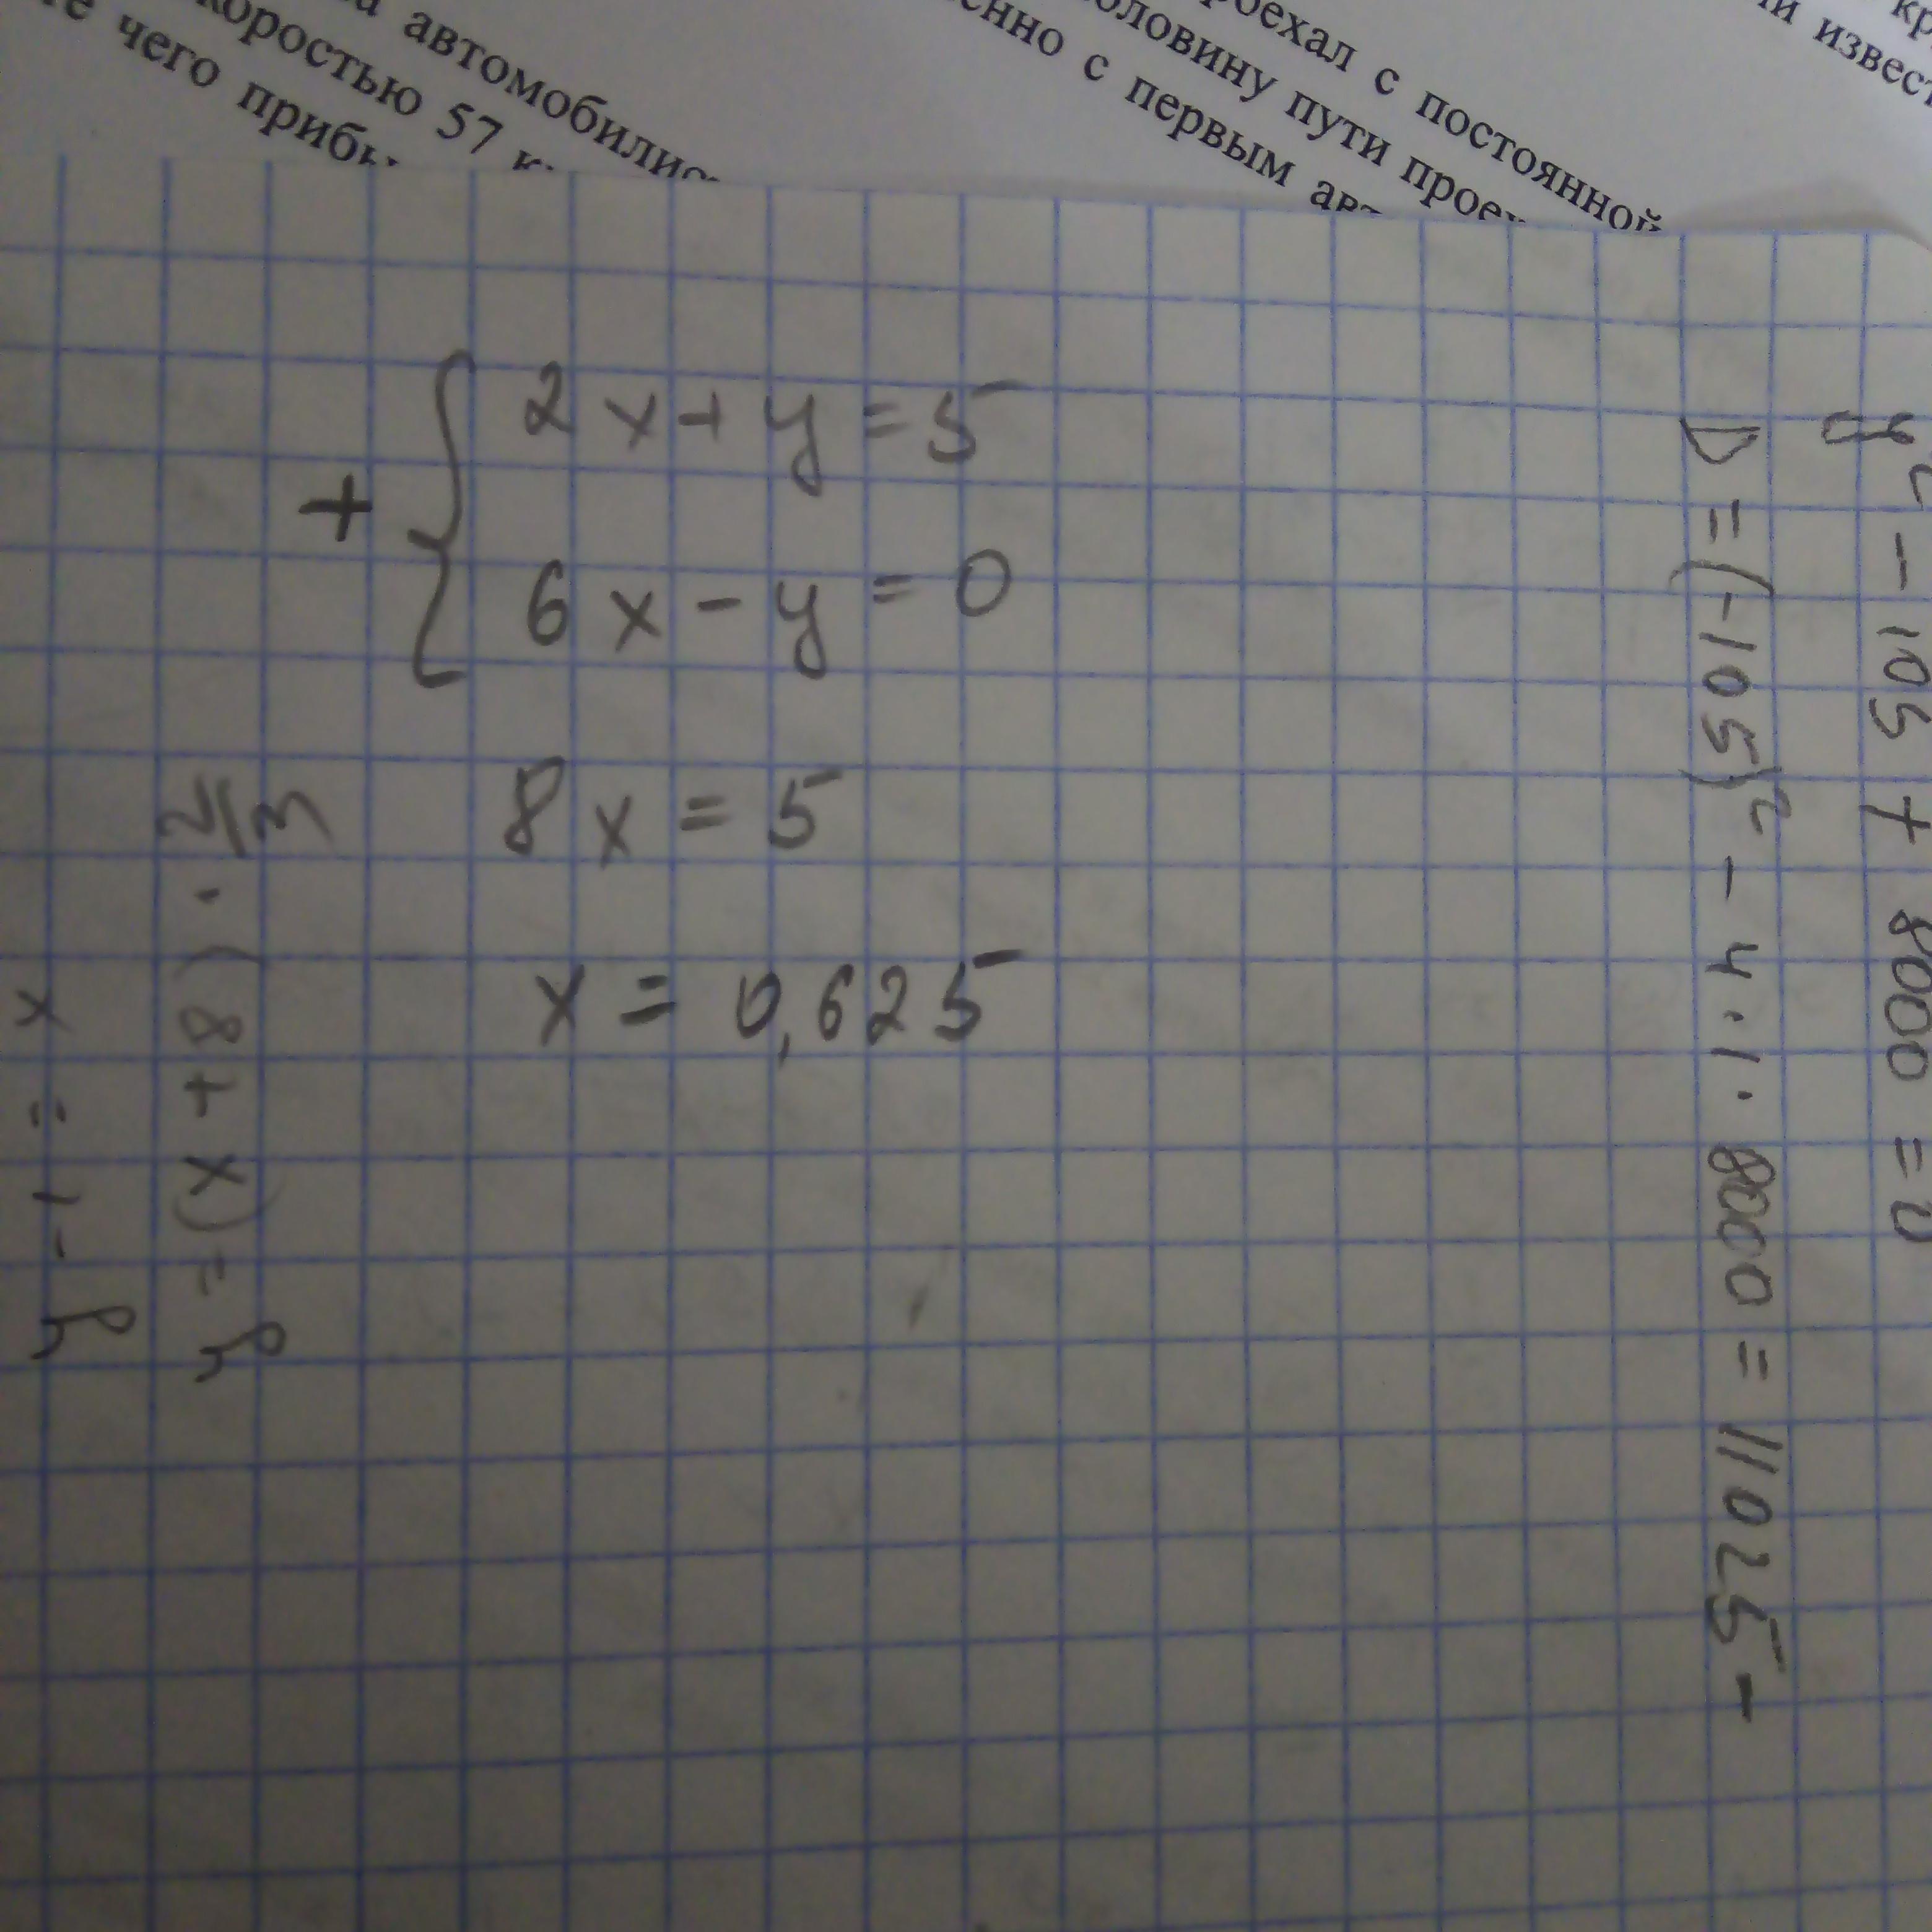 а автомобилис
коростью 57 к
е чего прибы
роехал с постоянной
половину пути проех
енно с первым авт
кр
и извест
+ { 2x + y = 5
6x - y = 0
8x = 5
x = 0,625
y² - 105 + 8000 = 0
D = (-105)² - 4 · 1 · 8000 = 11025 -
(x + 8) ·
x = 1 - y